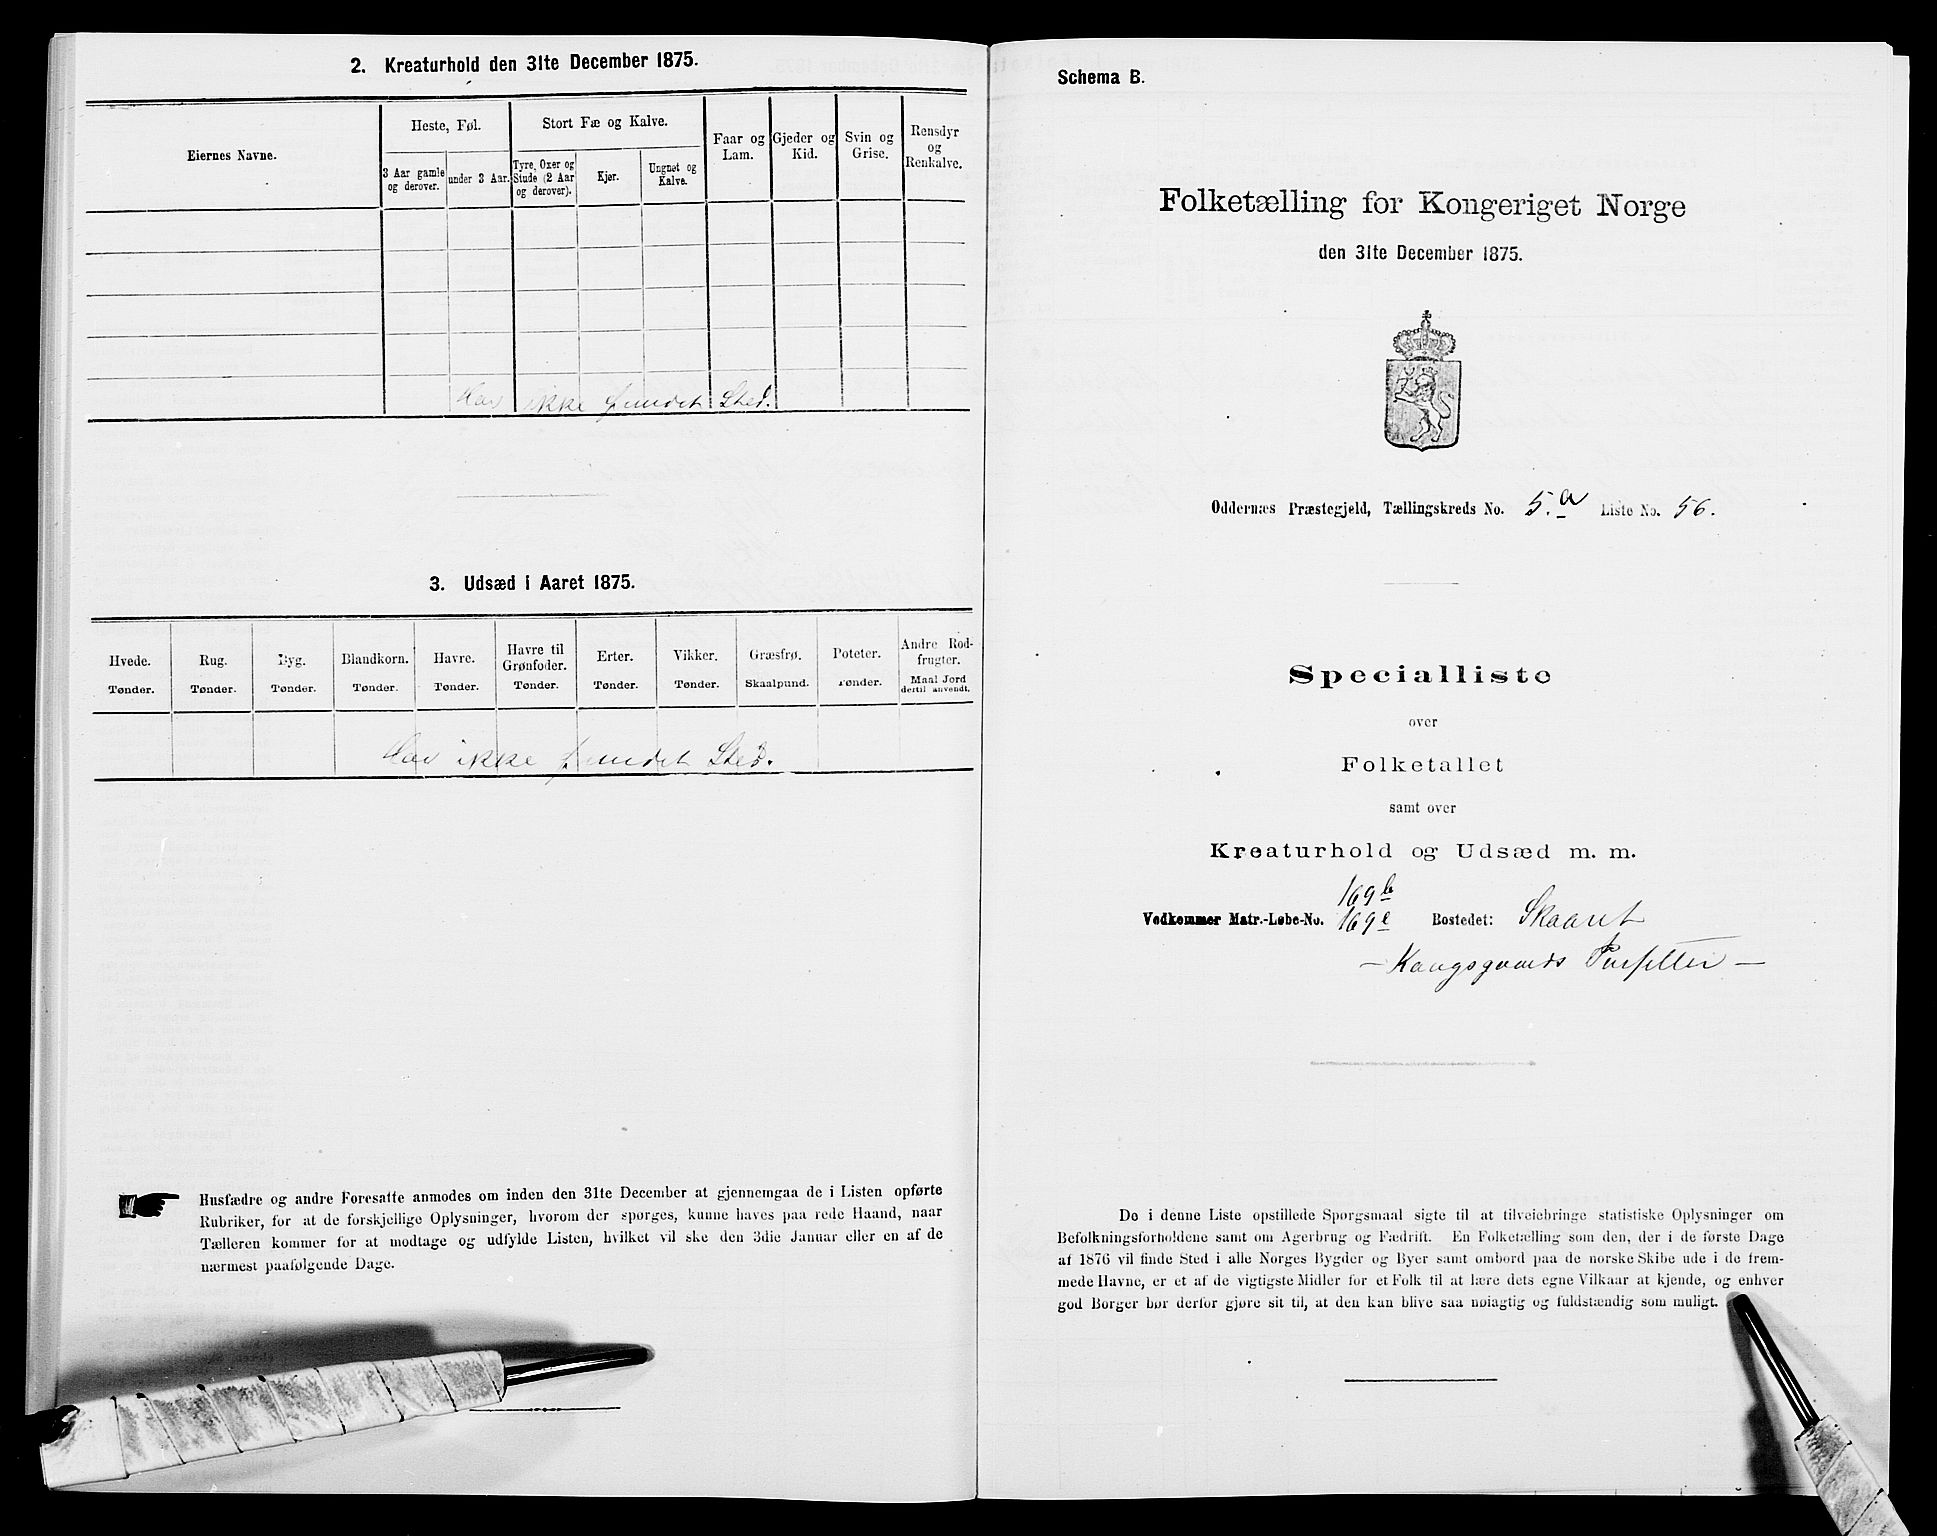 2. Kreaturhold den 31te December 1875.
Eiernes Navne.
Heste, Føl.
Stort Fæ og Kalve.
Faar og Lam.
Gjeder og Kid.
Svin og Grise.
Rensdyr og Renkalve.
3 Aar gamle og derover.
under 3 Aar.
Tyre, Oxer og Stude (2 Aar og derover).
Kjør.
Ungnøt og Kalve.
Har ikke fundet Sted.
3. Udsæd i Aaret 1875.
Hvede. Tønder.
Rug. Tønder.
Byg. Tønder.
Blandkorn. Tønder.
Havre. Tønder.
Havre til Grønfoder. Tønder.
Erter. Tønder.
Vikker. Tønder.
Græsfrø. Skaalpund.
Poteter. Tønder.
Andre Rodfrugter. Maal Jord dertil anvendt.
Har ikke fundet Sted.
Husfædre og andre Foresatte anmodes om inden den 31te December at gjennemgaa de i Listen opførte
Rubriker, for at de forskjellige Oplysninger, hvorom der spørges, kunne haves paa rede Haand, naar
Tælleren kommer for at modtage og udfylde Listen, hvilket vil ske den 3die Januar eller en af de
nærmest paafølgende Dage.
Schema B.
Folketælling for Kongeriget Norge
den 31te December 1875.
Oddernæs Præstegjeld, Tællingskreds No. 5.a Liste No. 56.
Specialliste
over
Folketallet
samt over
Kreaturhold og Udsæd m. m.
169 b
Vedkommer Matr.-Løbe-No. 169 e Bostedet: Skaaret
De i denne Liste opstillede Spørgsmaal sigte til at tilveiebringe statistiske Oplysninger om
Befolkningsforholdene samt om Agerbrug og Fædrift. En Folketælling som den, der i de første Dage
af 1876 vil finde Sted i alle Norges Bygder og Byer samt ombord paa de norske Skibe ude i de frem-
mede Havne, er et af de vigtigste Midler for et Folk til at lære dets egne Vilkaar at kjende, og enhver
god Borger bør derfor gjøre sit til, at den kan blive saa nøiagtig og fuldstændig som muligt.